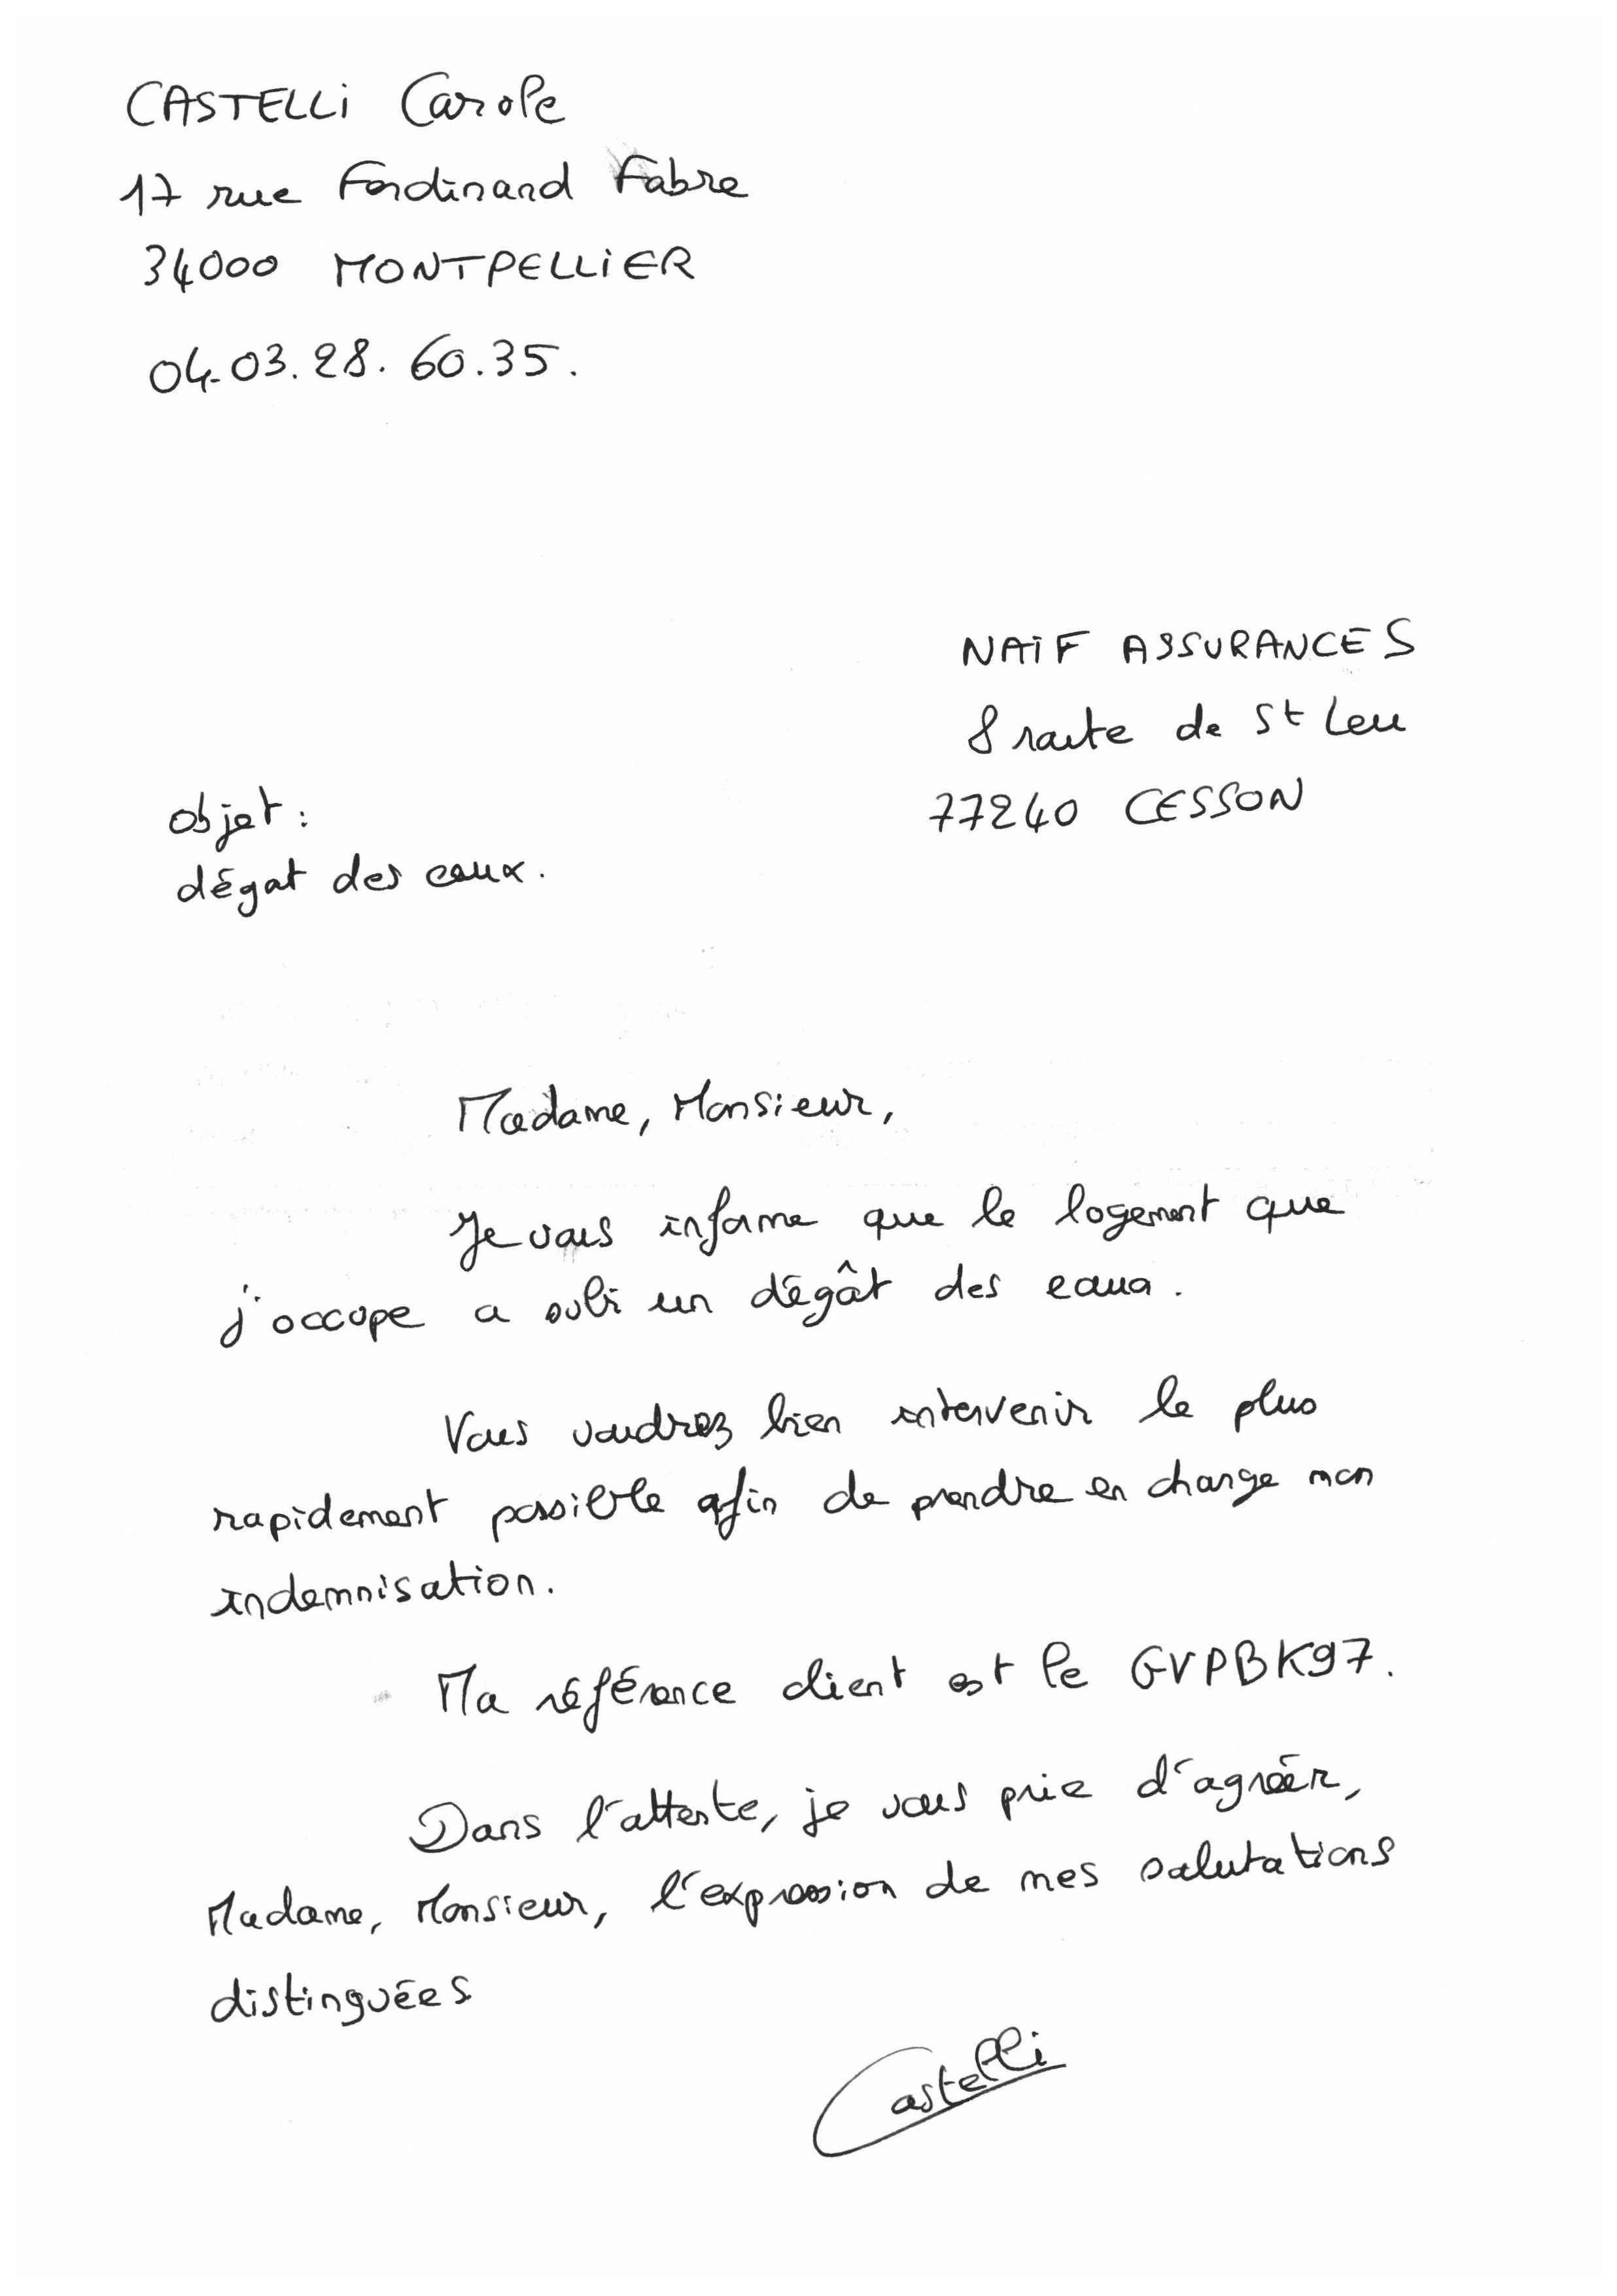 CASTELLI Carole
17 rue Ferdinand Fabre
34000 MONTPELLIER
04.03.28.60.35.
NAIF ASSURANCES
8 route de St Leu
77240 CESSON
objet :
dégat des eaux.
Madame, Monsieur,
Je vous informe que le logement que
j'occupe a subi un dégât des eaux.
Vous voudrez bien intervenir le plus
rapidement possible afin de prendre en charge mon
indemnisation.
Ma référence client est le GVPBK97.
Dans l'attente, je vous prie d'agréer,
Madame, Monsieur, l'expression de mes salutations
distinguées
Castelli